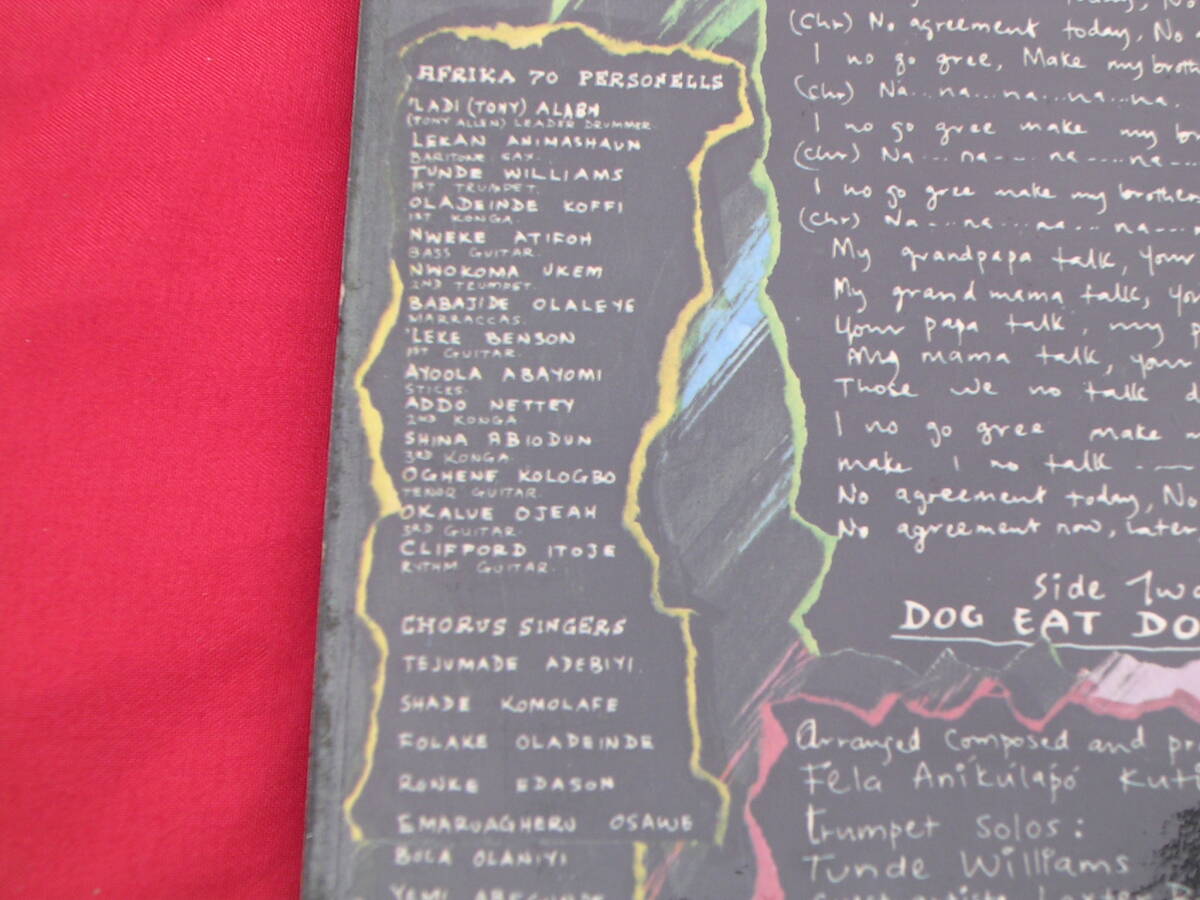 AFRIKA 70 PERSONELLS
'LADI (TONY) ALABH
(TONY ALLEN) LEADER DRUMMER.
LEKAN ANIMASHAUN
BARITONE SAX.
TUNDE WILLIAMS
1ST TRUMPET.
OLADEINDE KOFFI
1ST KONGA.
NWEKE ATIFOH
BASS GUITAR.
NWOKOMA UKEM
2ND TRUMPET.
BABAJIDE OLALEYE
MARRACCAS.
'LEKE BENSON
1ST GUITAR.
AYOOLA ABAYOMI
STICKS
ADDO NETTEY
2ND KONGA
SHINA ABIODUN
3RD KONGA
OGHENE KOLOGBO
TENOR GUITAR.
OKALUE OJEAH
3RD GUITAR.
CLIFFORD ITOJE
RYTHM GUITAR.
CHORUS SINGERS
TEJUMADE ADEBIYI.
SHADE KOMOLAFE
FOLAKE OLADEINDE
RONKE EDASON
EMARUAGHERU OSAWE
BOLA OLANIYI
YEMI
today, No
(chr) No agreement today, No
I no go gree, Make my broth
(chr) Na...na...na...na...na.
I no go gree make my b
(chr) Na... na... na ....na...
I no go gree make my brother
(chr) Na... na... na... na...
My grandpapa talk, your
My grandmama talk, yo
Your papa talk, my p
My mama talk, your
Those we no talk d
I no go gree make m
make I no talk ...
No agreement today, No
No agreement now, later
Side Two
DOG EAT DO
Arranged Composed and pr
Fela Anikulapo Kuti
trumpet Solos:
Tunde Williams
Guest artiste Lester B